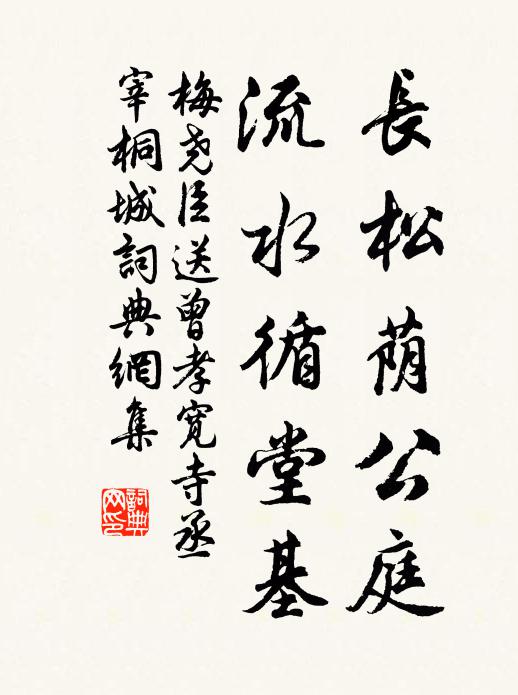 長松荫公庭
流水循堂基
梅尧臣送曾孝寬寺丞
宰桐城詞典網集
詞典
网印